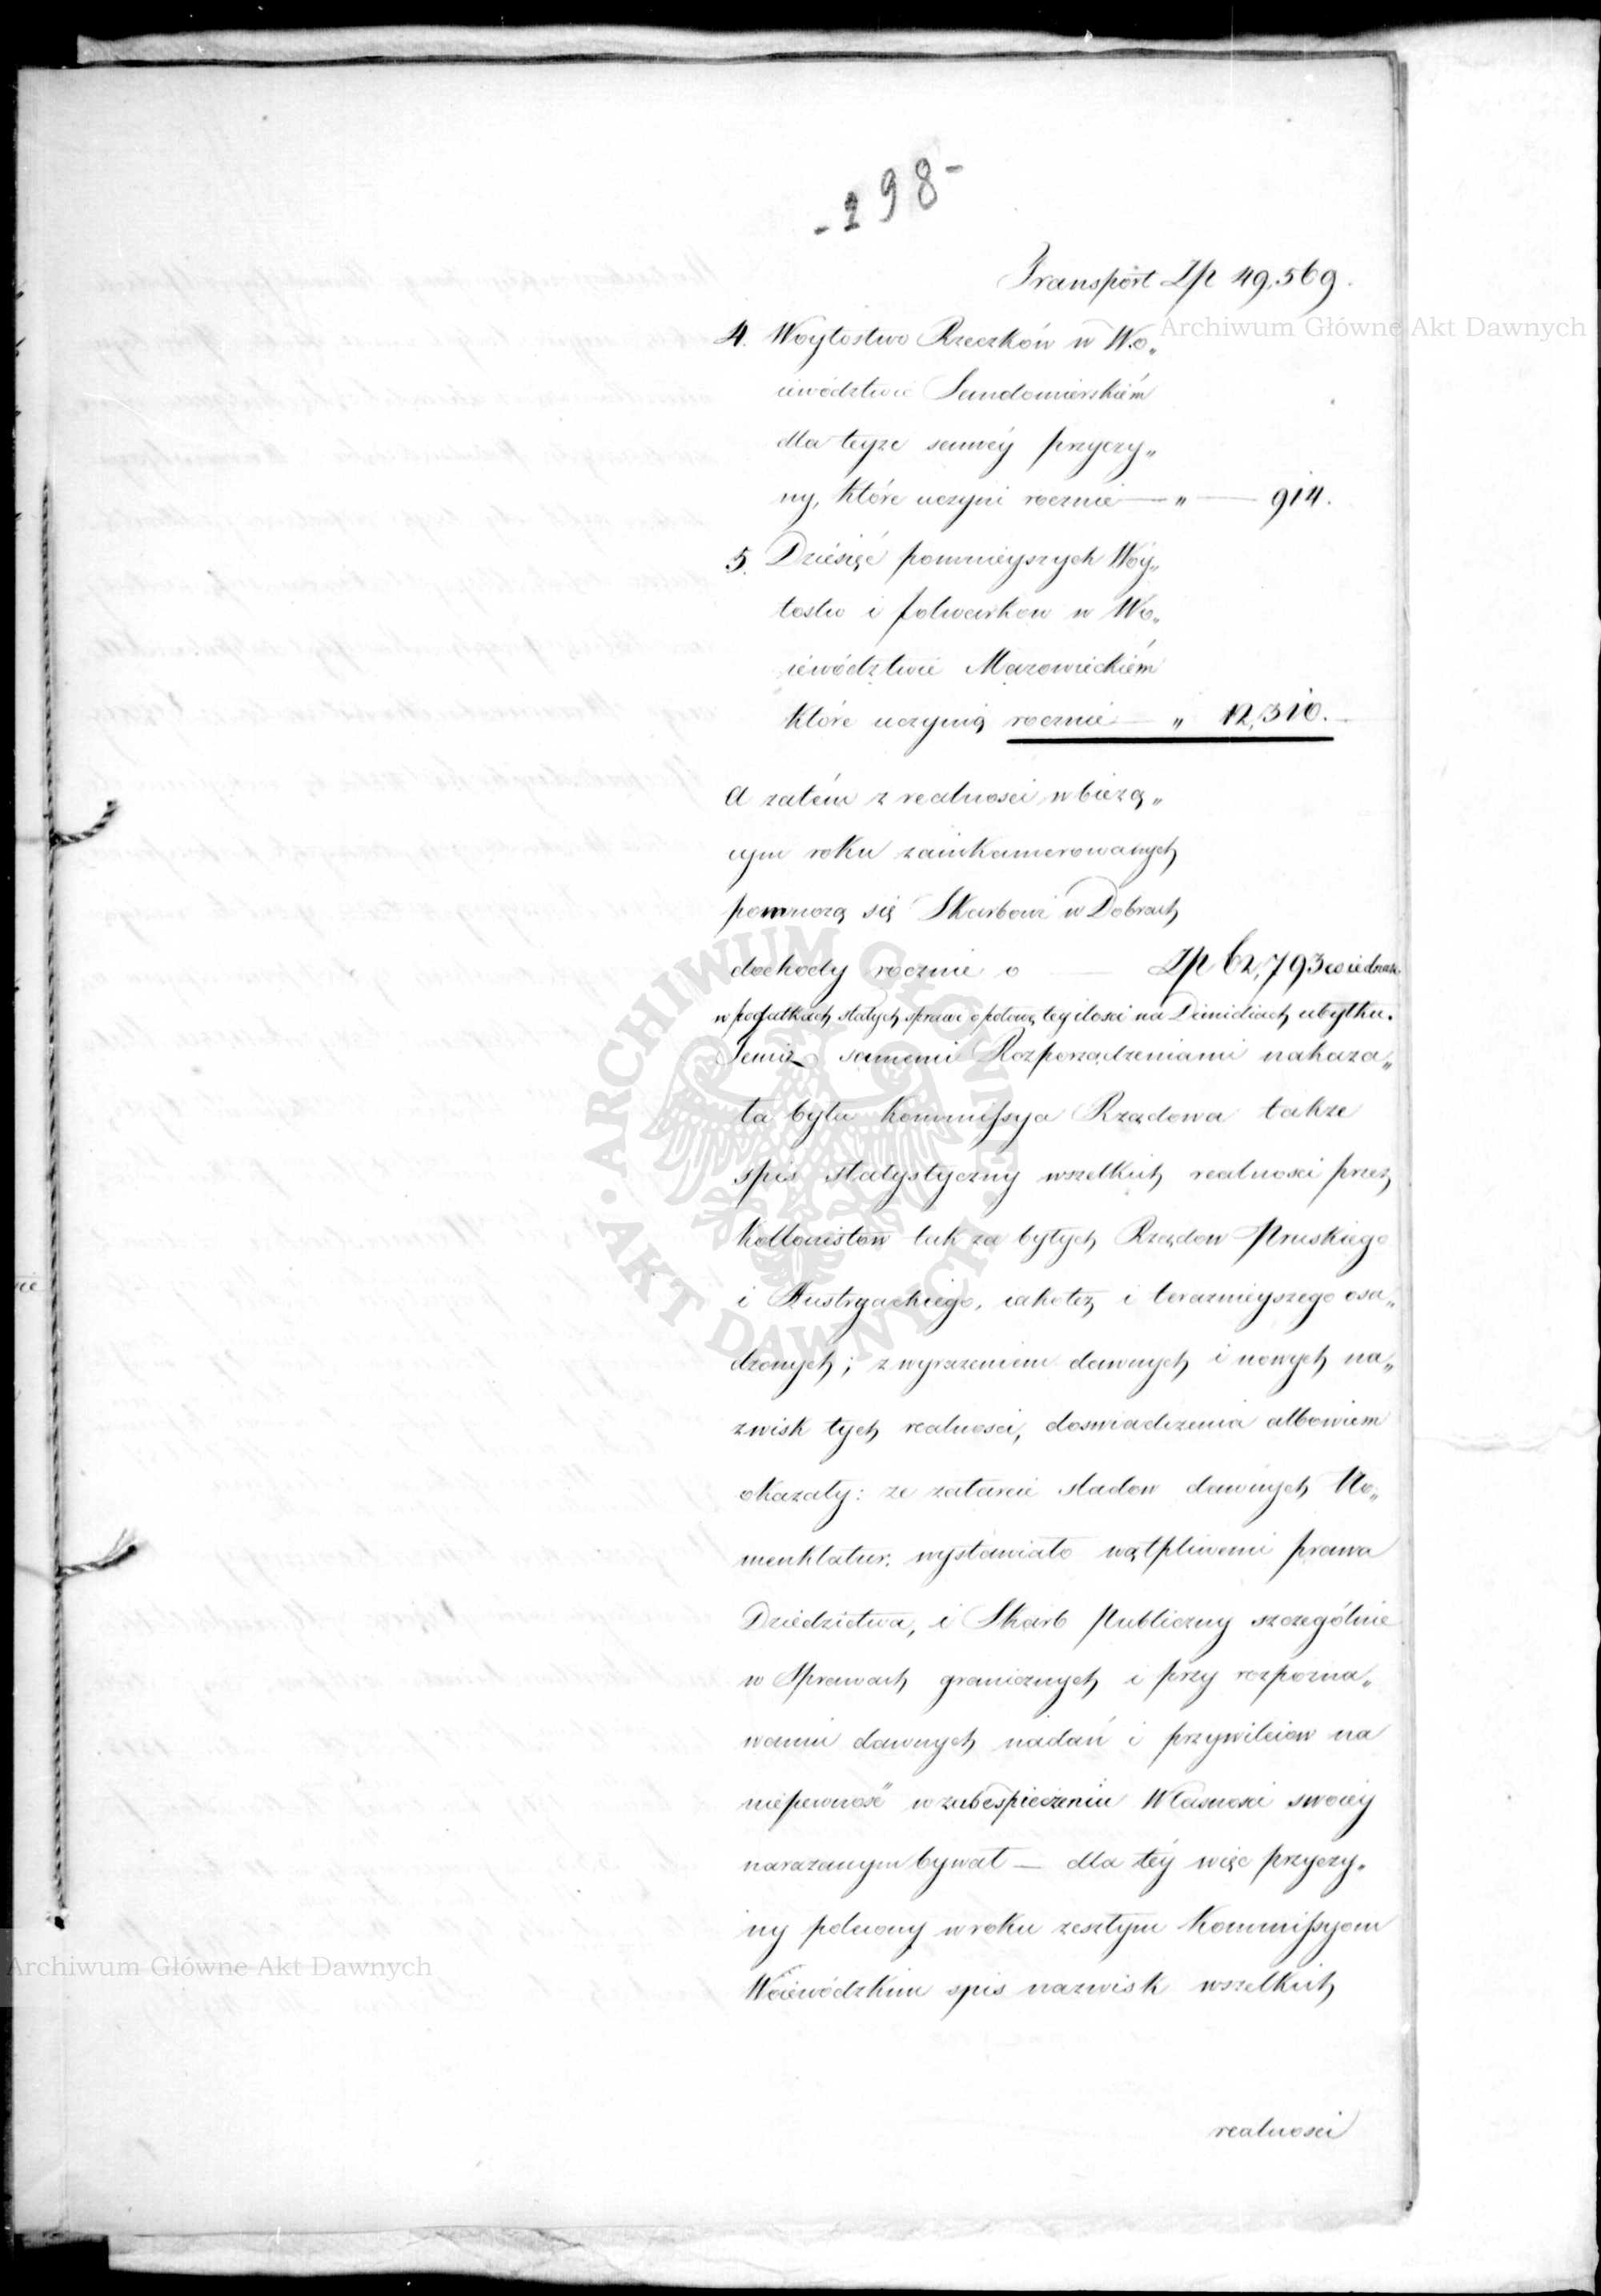 -198-
Transport Zp 49,569.
4. Woytostwo Rzeczków w Wo„
iewództwie Sandomierskiém
dla teyże samey przyczy„
ny, które uczyni rocznie — „ — 914.
5. Dziésięć pomnieyszych Wóy„
tostw i folwarkow w Wo„
iewództwie Mazowieckiém
które uczynią rocznie — „ 12,310.—
A zatém z realnosci w bieżą„
cym roku zainkamerowanych
pomnożą się Skarbowi w Dobrach
dochody rocznie o — Zp 62,793 co iednak
w podatkach stałych sprawi o połowę tey ilosci na Dimidiach ubytku.
Temiż samemi Rozporządzeniami nakaza„
ła była Kommissya Rządowa także
spis statystyczny wszelkich realnosci przez
kollonistów tak za byłych Rządow Pruskiego
i Austryackiego, iakoteż i teraznieyszego osa„
dzonych; z wyrażeniem dawnych i nowych na„
zwisk tych realnosci, doswiadczenia albowiem
okazały: że zatarcie sladow dawnych No„
menklatur: wystawiało wątpliwemi prawa
Dziedzictwa, i Skarb Publiczny szczególnie
w Sprawach granicznych i przy rozpozna„
waniu dawnych nadań i przywileiow na
niepewność w zabespieczeniu Własnosci swoiey
narażanym bywał — dla téy więc przyczy„
ny polecony w roku zeszłym Kommissyom
Woiewódzkim spis nazwisk wszelkich
realnosci
Archiwum Główne Akt Dawnych
ARCHIWUM GŁÓWNE · AKT DAWNYCH ·
Archiwum Główne Akt Dawnych